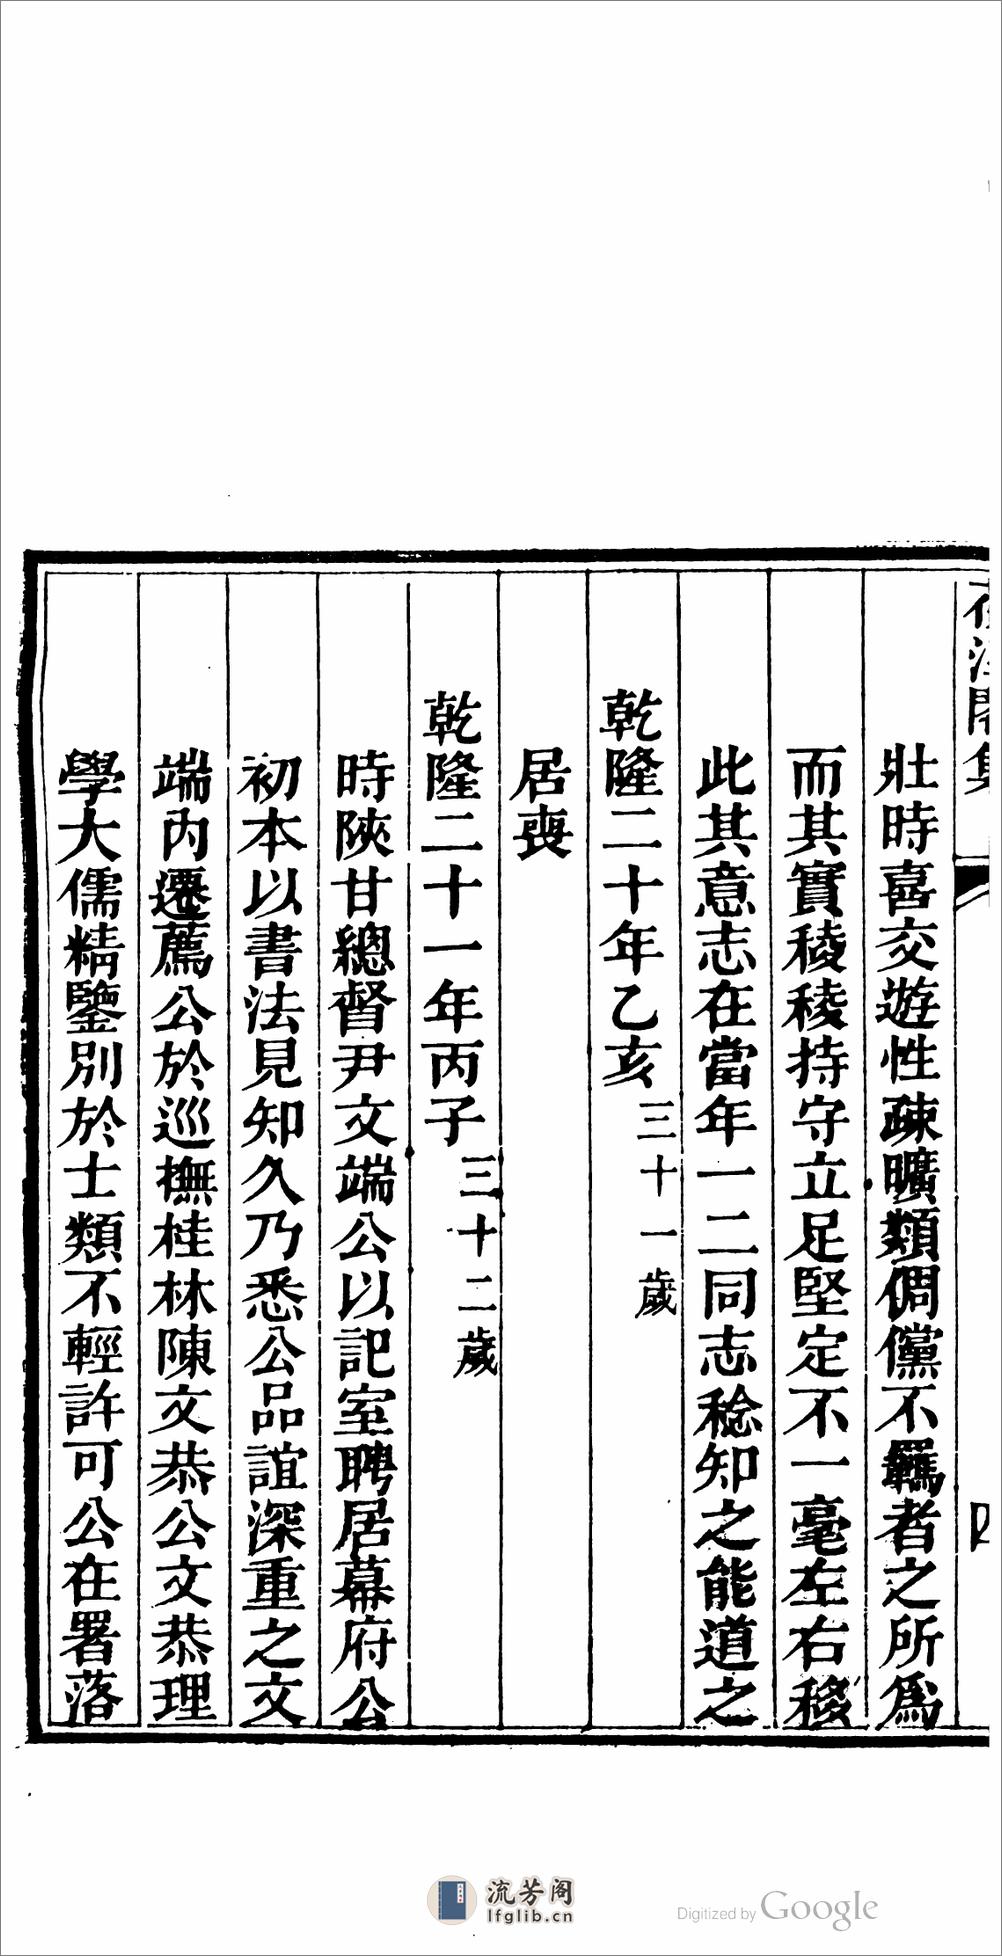 壯時喜交遊性疎曠類倜儻不羈者之所爲
而其實稜稜持守立足堅定不一毫左右移
此其意志在當年一二同志稔知之能道之
乾隆二十年乙亥三十一歲
居喪
乾隆二十一年丙子三十二歲
時陝甘總督尹文端公以記室聘居幕府公
初本以書法見知久乃悉公品誼深重之文
端內遷薦公於巡撫桂林陳文恭公文恭理
學大儒精鑒別於士類不輕許可公在署落
流芳阁
lfglib.cn
Digitized by Google